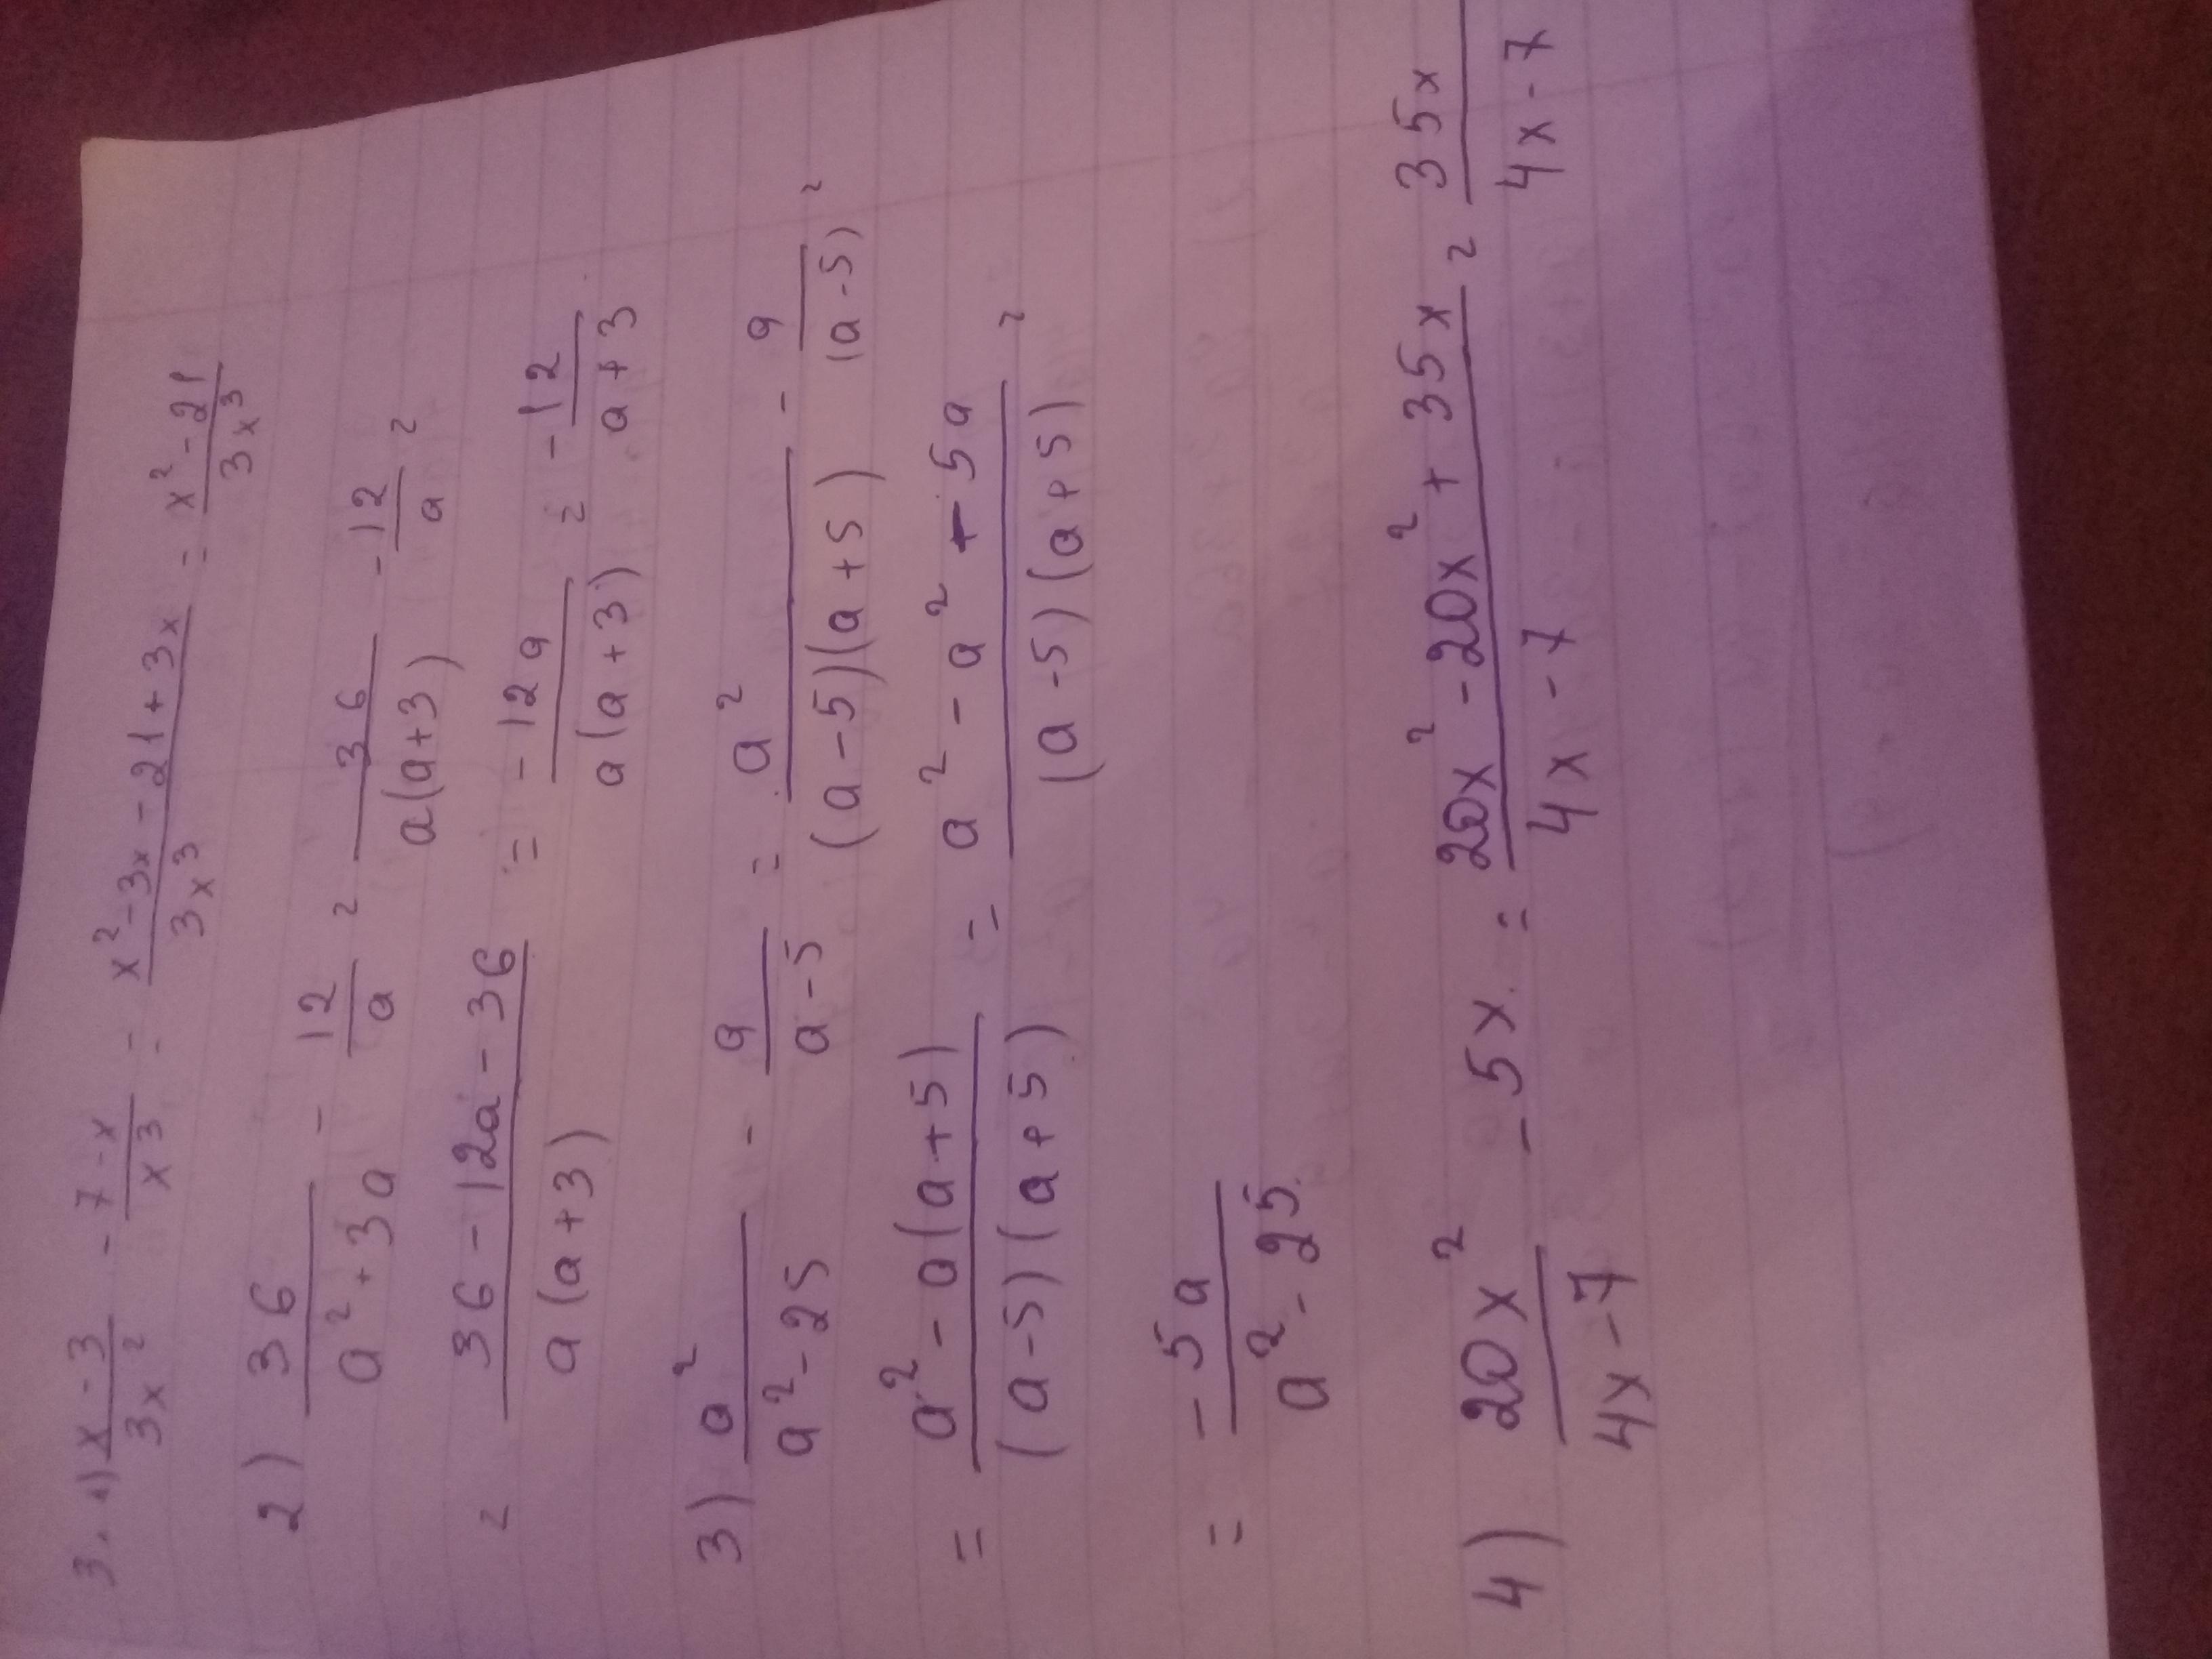 3. 1) (x-3)/(3x²) - (7-x)/(x³) = (x²-3x-21+3x)/(3x³) = (x²-21)/(3x³)
2) 36/(a²+3a) - 12/a = 36/(a(a+3)) - 12/a =
= (36-12a-36)/(a(a+3)) = -12a/(a(a+3)) = -12/(a+3)
3) a²/(a²-25) - a/(a-5) = a²/((a-5)(a+5)) - a/(a-5) =
= (a²-a(a+5))/((a-5)(a+5)) = (a²-a²-5a)/((a-5)(a+5)) =
= -5a/(a²-25)
4) 20x²/(4x-7) - 5x = (20x²-20x²+35x)/(4x-7) = 35x/(4x-7)